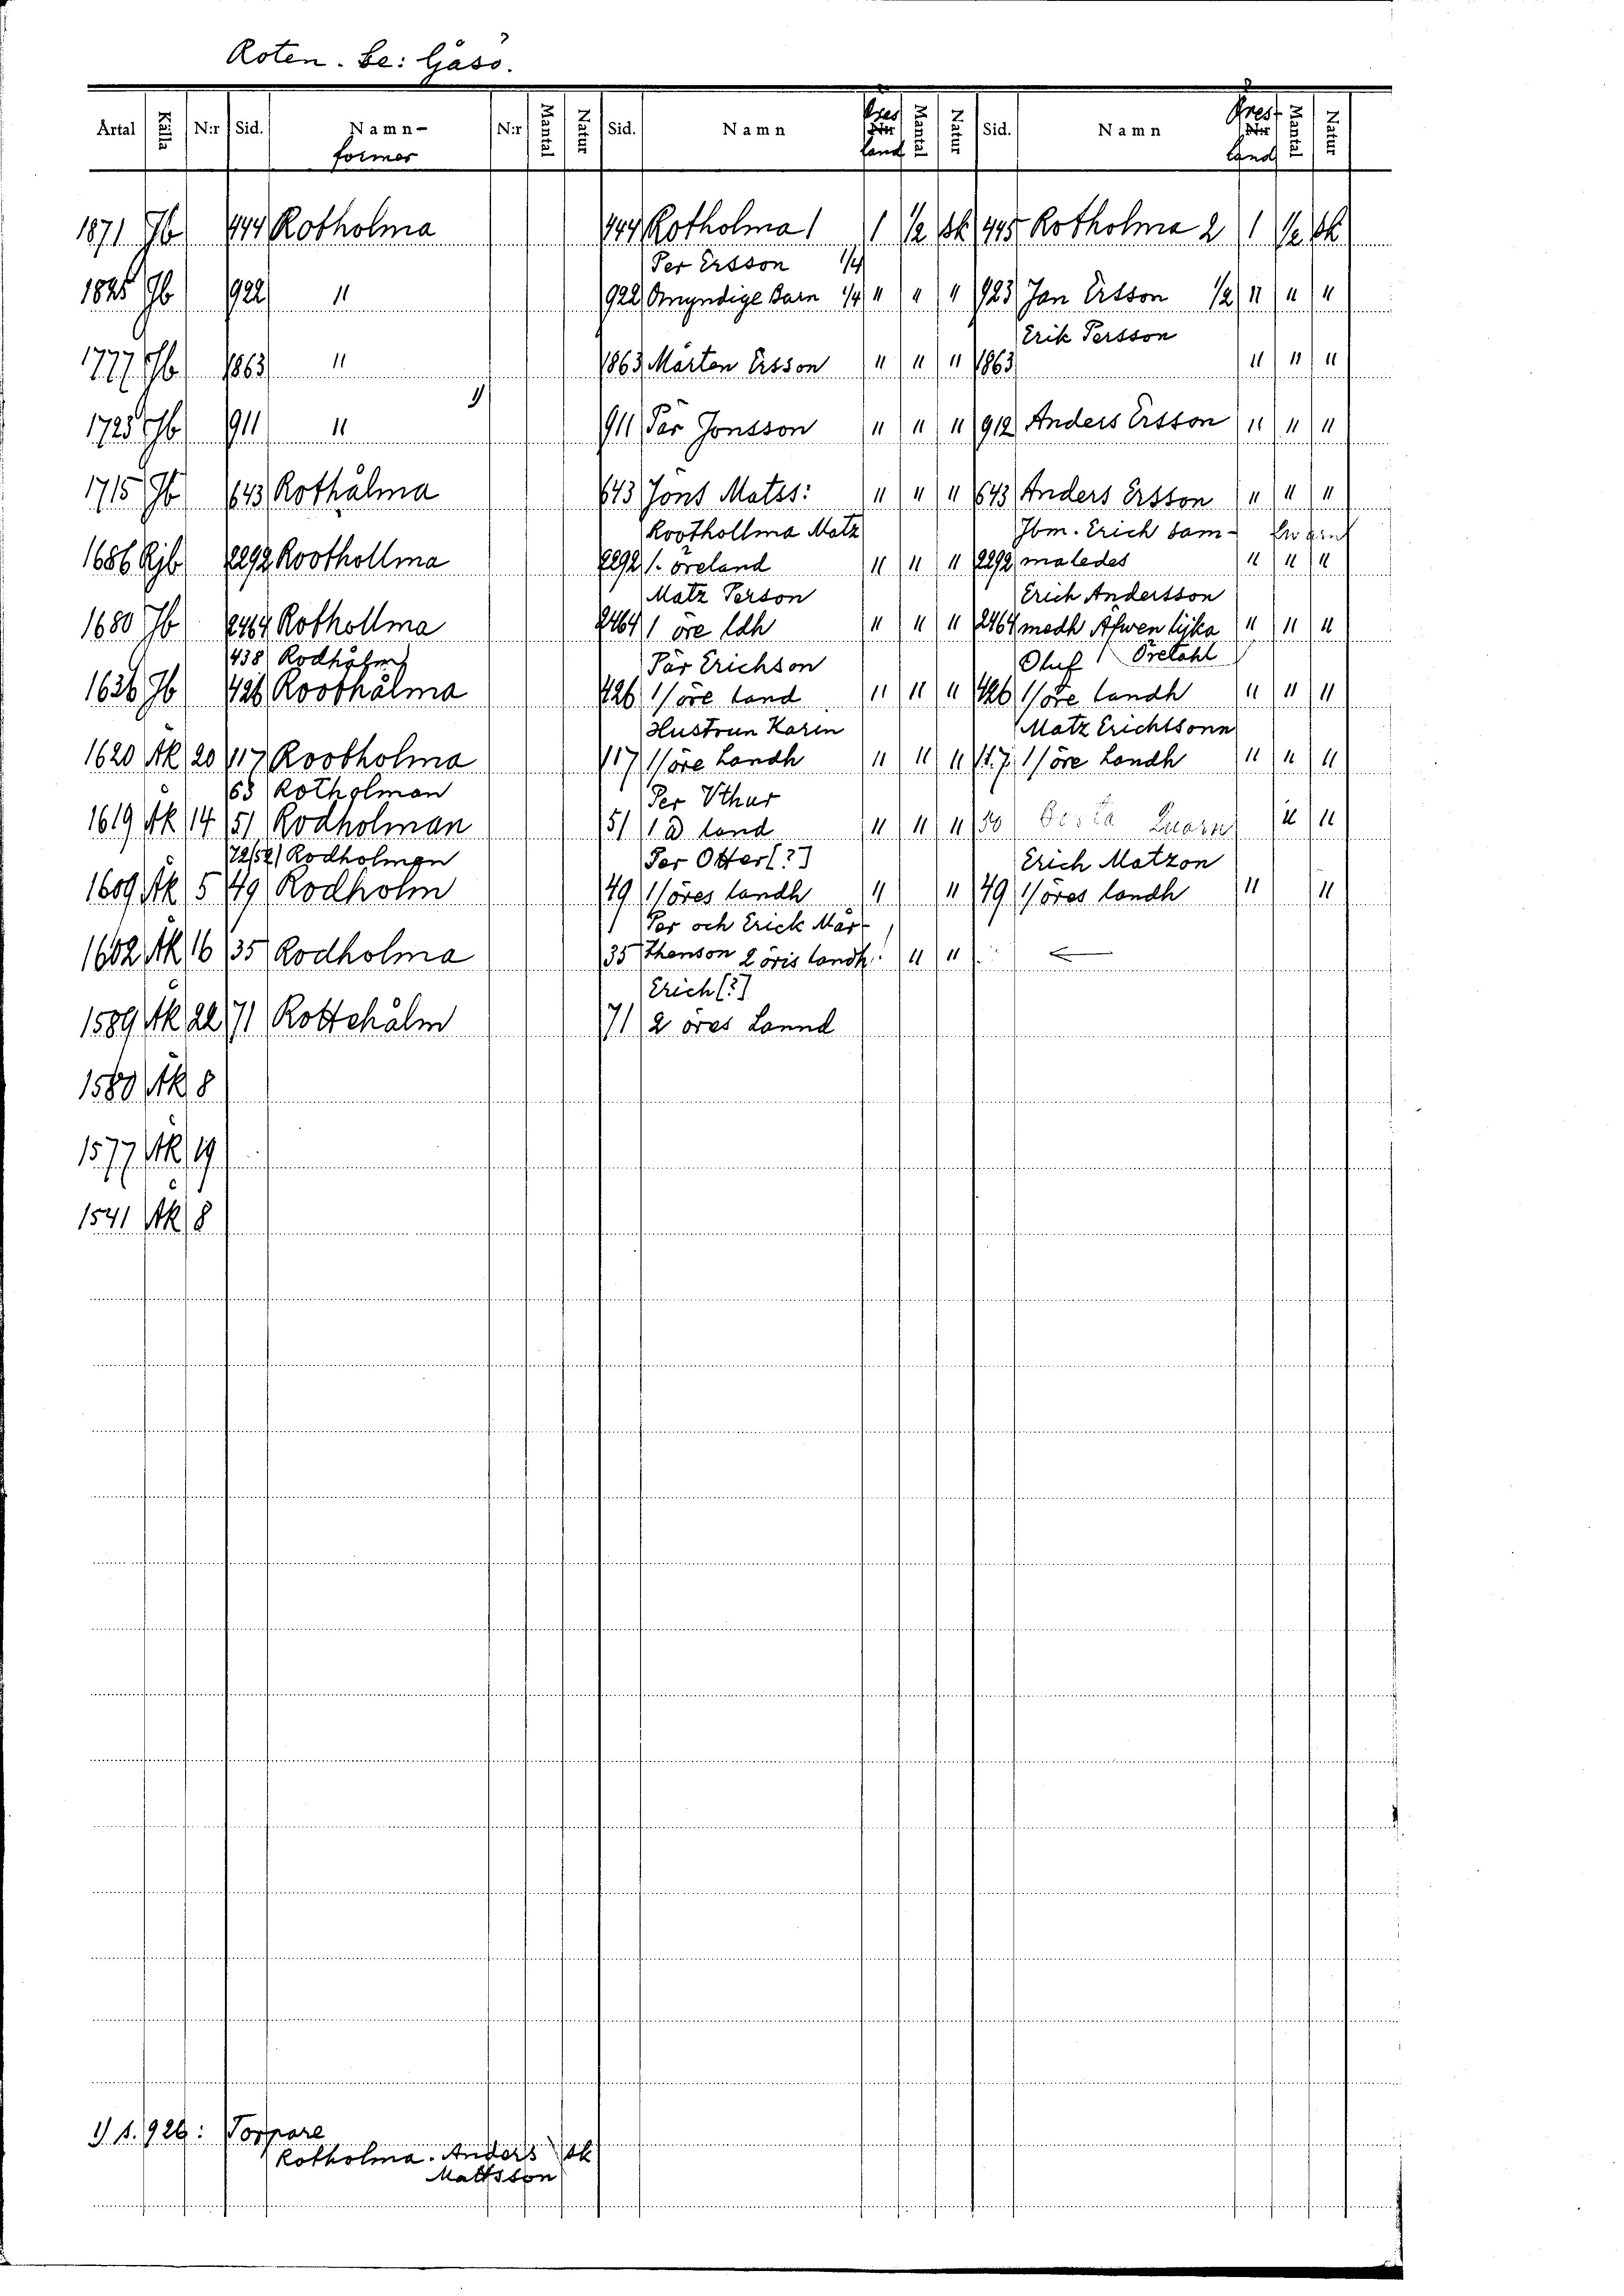 Roten. Se: Gåsö.
Årtal Källa N:r Sid. Namn- N:r Mantal Natur Sid. Namn Öres Mantal Natur Sid. Namn Öres Mantal Natur
former land land
1871 Jb 444 Rotholma 444 Rotholma 1 1 1/2 sk 445 Rotholma 2 1 1/2 sk
Per Ersson 1/4
1825 Jb 922 " 922 Omyndige Barn 1/4 " " " 923 Jan Ersson 1/2 " " "
Erik Persson
1777 Jb 1863 " 1863 Mårten Ersson " " " 1863 " " "
1)
1725 Jb 911 " 911 Pär Jonsson " " " 912 Anders Ersson " " "
1715 Jb 643 Rothålma 643 Jöns Matss: " " " 643 Anders Ersson " " "
Roothollma Matz Jbm. Erich sam-
1686 Rjb 2292 Roothollma 2292 1. öreland " " " 2292 maledes " " "
Matz Person Erich Andersson
1680 Jb 2464 Rothollma 2464 1 öre ldh " " " 2464 medh Äfwen lijka " " "
438 Rodhålm Pär Erichson Oluf Öretahl
1636 Jb 426 Roothålma 426 1/öre land " " " 426 1/öre landh " " "
Hustrun Karin Matz Erichtsonn
1620 Äk 20 117 Rootholma 117 1/öre Landh " " " 117 1/öre Landh " " "
63 Rotholman Per Vthur
1619 Äk 14 51 Rodholman 51 1 land " " " 50 " "
72/52) Rodholman Per Otter[?] Erich Matzon
1609 Äk 5 49 Rodholm 49 1/öres landh " " 49 1/öres landh " "
Per och Erick Mår-
1602 Äk 16 35 Rodholma 35 thenson 2 öris landh. " " ←
Erich[?]
1589 Äk 22 71 Rottehålm 71 2 öres Lannd
1580 Äk 8
1577 Äk 19
1541 Äk 8
1) s. 926: Torpare
Rotholma. Anders sk
Mattsson